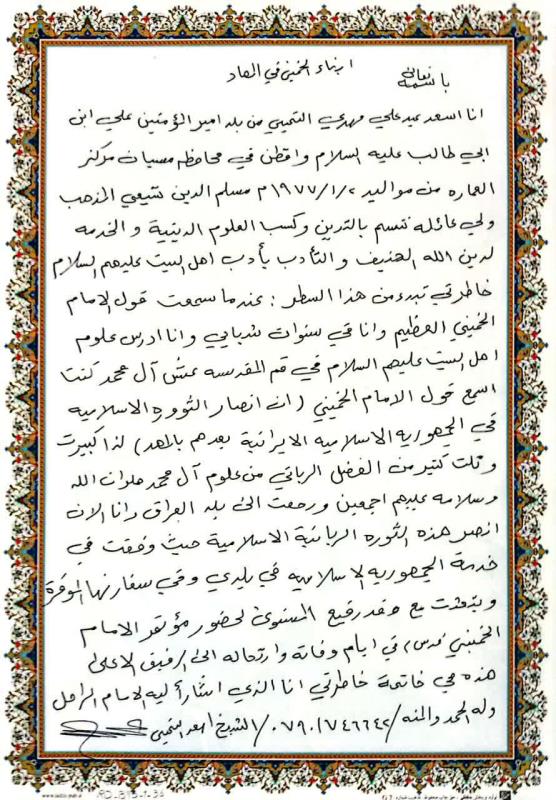 باسمه تعالى
ابناء الخميني في المهد
انا اسعد عبد علي مهدي التميمي من بلد امير المؤمنين علي ابن
ابي طالب عليه السلام واقطن في محافظه ميسان مركز
العماره من مواليد ١٩٧٧/١/٢ م مسلم الدين شيعي المذهب
ولي عائله تتسم بالتدين وكسب العلوم الدينية والخدمه
لدين الله الحنيف والتأدب بأدب اهل البيت عليهم السلام
خاطرتي تبدء من هذا السطر: عندما سمعت قول الامام
الخميني العظيم وانا في سنوات شبابي وانا ادرس علوم
اهل البيت عليهم السلام في قم المقدسه عش آل محمد كنت
اسمع قول الامام الخميني (ان انصار الثوره الاسلاميه
في الجمهوريه الاسلاميه الايرانية بعدهم بالمهد) لذا كبرت
ونلت كثير من الفضل الرباني من علوم آل محمد صلوات الله
وسلامه عليهم اجمعين ورجعت الى بلد العراق وانا الان
انصر هذه الثوره الربانية الاسلامية حيث وفقت في
خدمة الجمهوريه الاسلاميه في بلدي وفي سفارتها الموقرة
وتشرفت مع وفد رفيع المستوى لحضور مؤتمر الامام
الخميني (قدس) في ايام وفاته وارتحاله الى الرفيق الاعلى
هذه هي خاتمة خاطرتي انا الذي اشار أليه الامام الراحل
وله الحمد والمنه / ٠٧٩٠١٧٤٦٦٤٢ / الشيخ اسعد التميمي